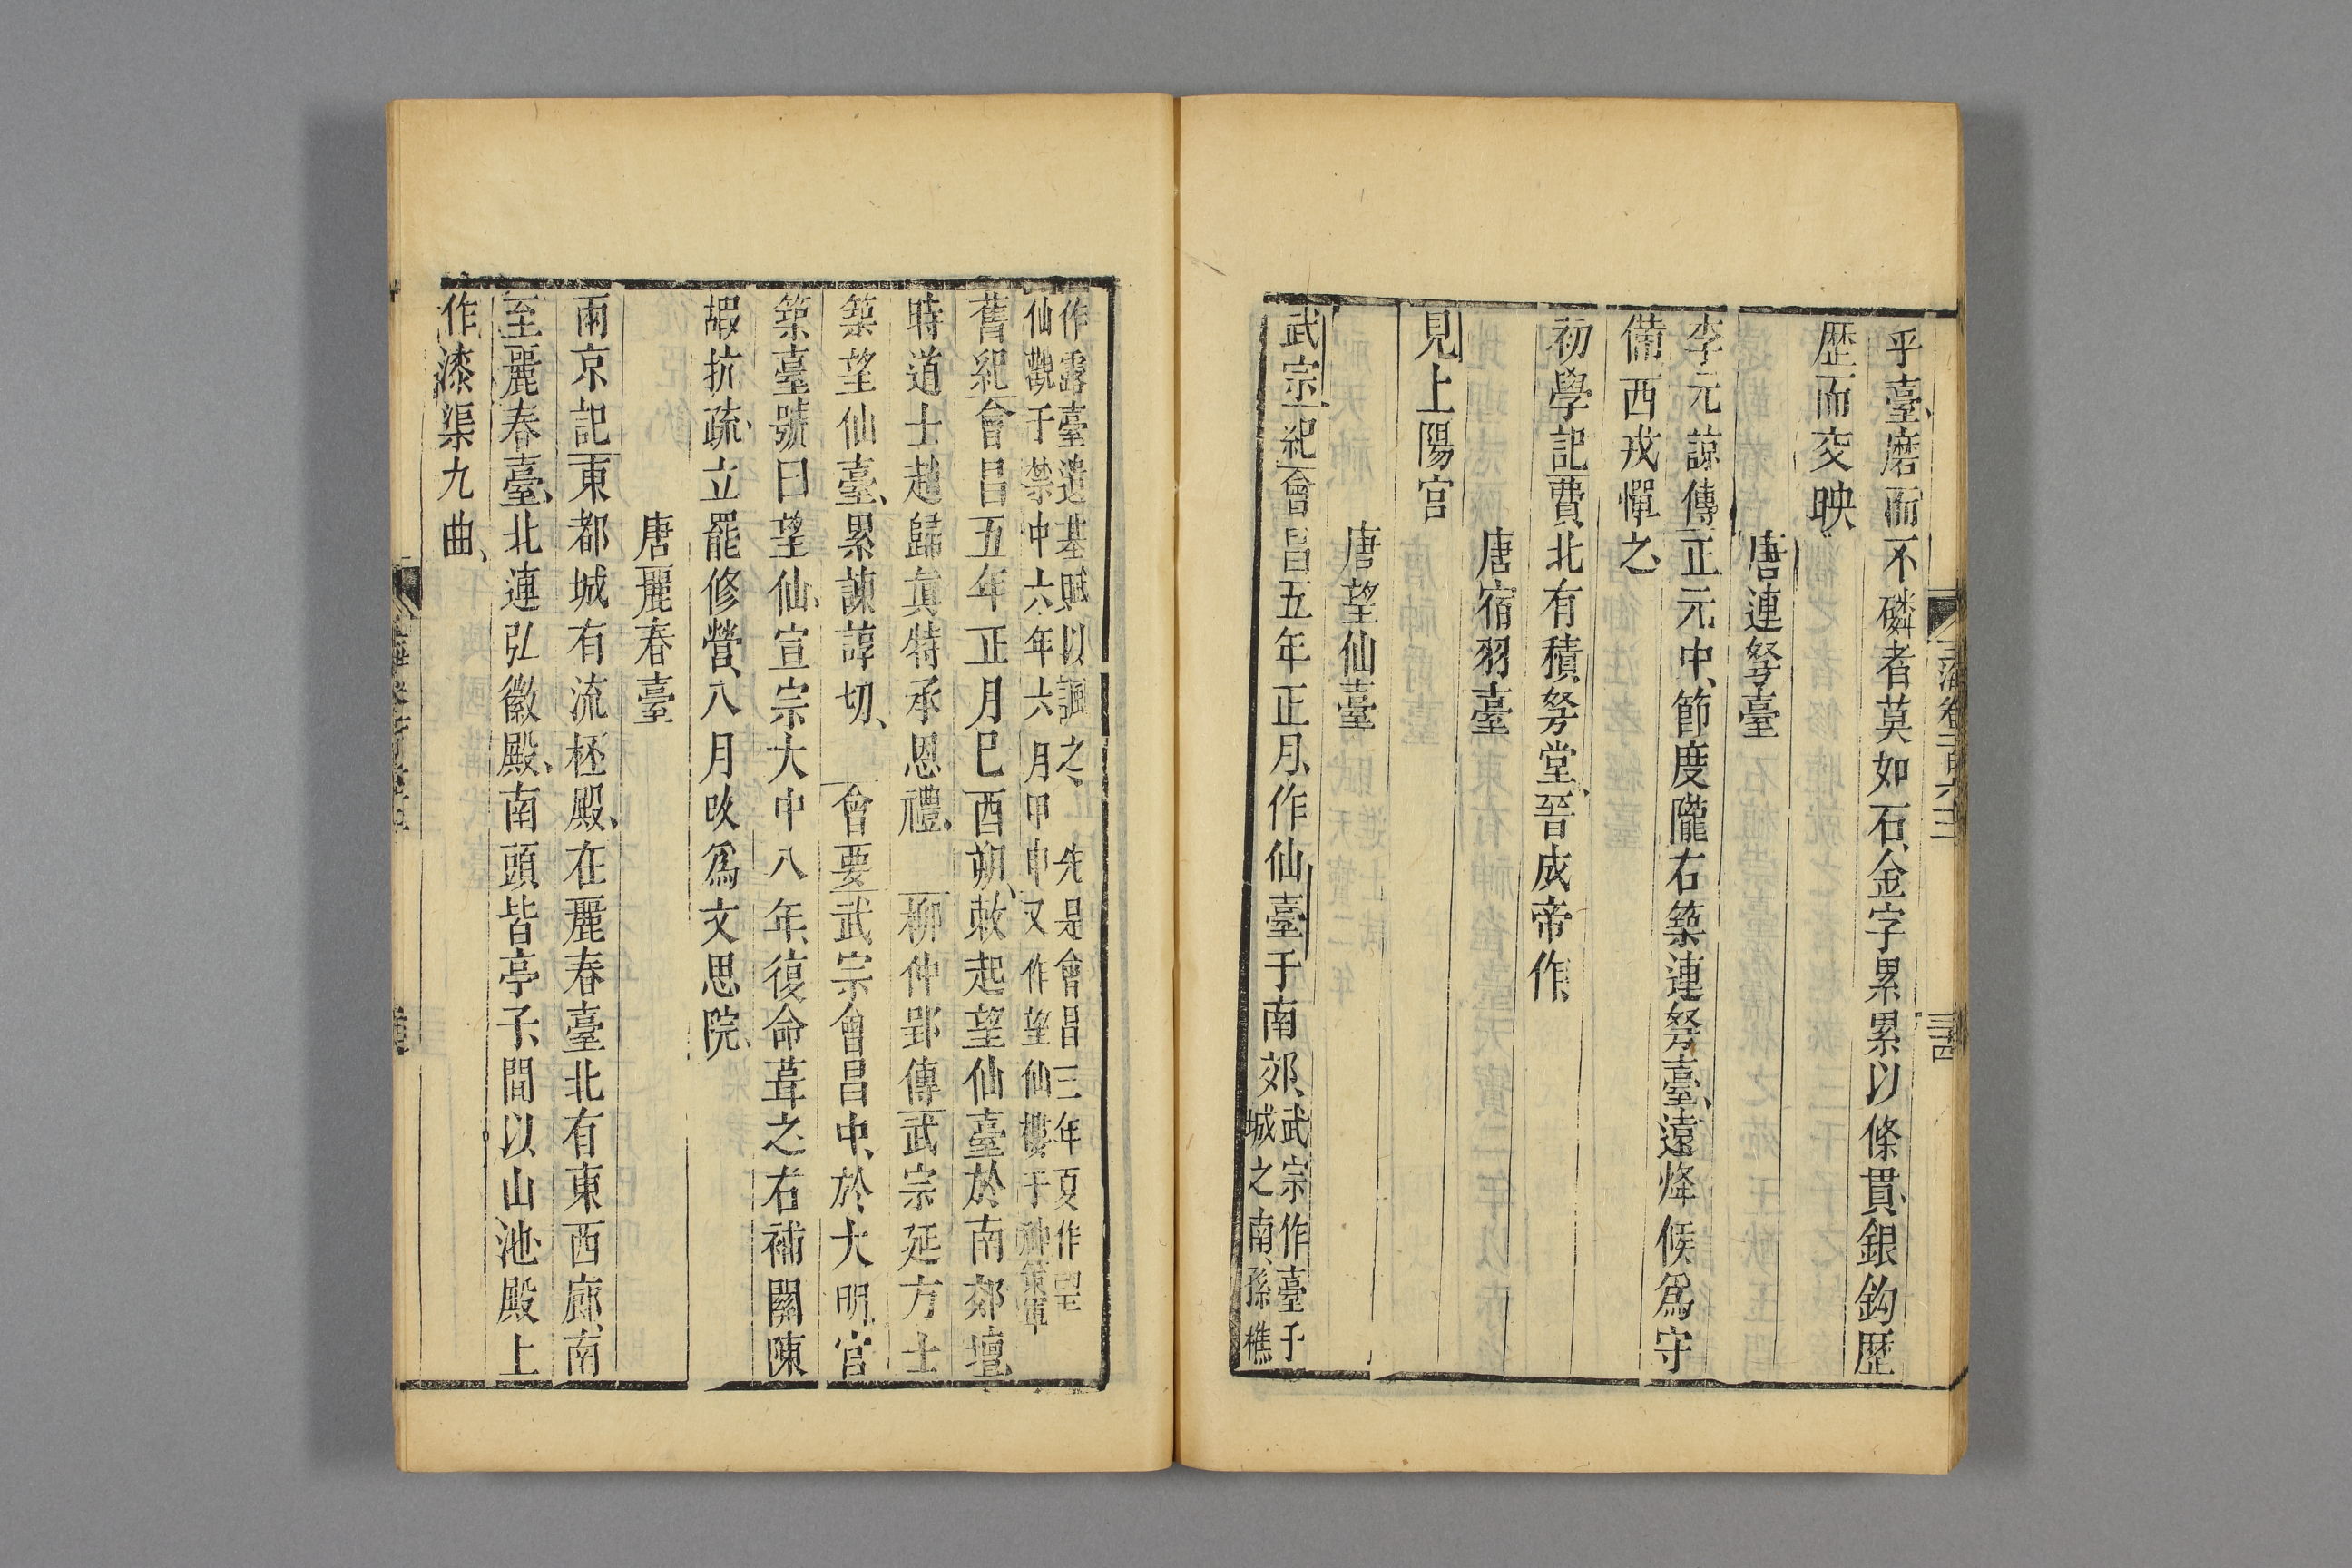 乎臺、磨而不磷者莫如石、金字累累以條貫、銀鈎歷
歷而交映、
唐連弩臺
李元諒傳正元中、節度隴右築連弩臺、遠烽候爲守
備西戎憚之、
初學記費北有積弩堂、晉成帝作、
唐宿羽臺
見上陽宮
唐望仙臺
武宗紀會昌五年正月、作仙臺于南郊、武宗作臺于
城之南、孫樵
作露臺遺基賦以諷之、先是會昌三年夏作望
仙觀于禁中六年六月甲申又作望仙樓于神策軍
舊紀會昌五年正月巳酉朔、敕起望仙臺於南郊壇、
時道士趙歸眞特承恩禮、柳仲郢傳武宗延方士
築望仙臺、累諫諄切、會要武宗會昌中、於大明宮
築臺號曰望仙、宣宗大中八年、復命葺之、右補闕陳
嘏抗疏、立罷修營、八月改爲文思院、
唐麗春臺
兩京記東都城有流杯殿、在麗春臺北有東西廊、南
至麗春臺、北連弘徽殿、南頭皆亭子、間以山池、殿上
作漆渠九曲、